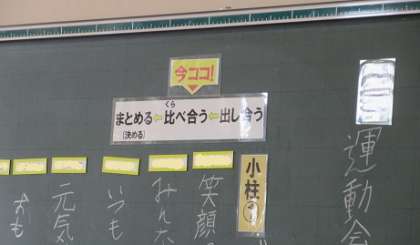 今ココ!
まとめる⇦比べ合う⇦出し合う
くら
(決める)
運動会
小柱①
笑顔
みんな
いつも
元気
おも